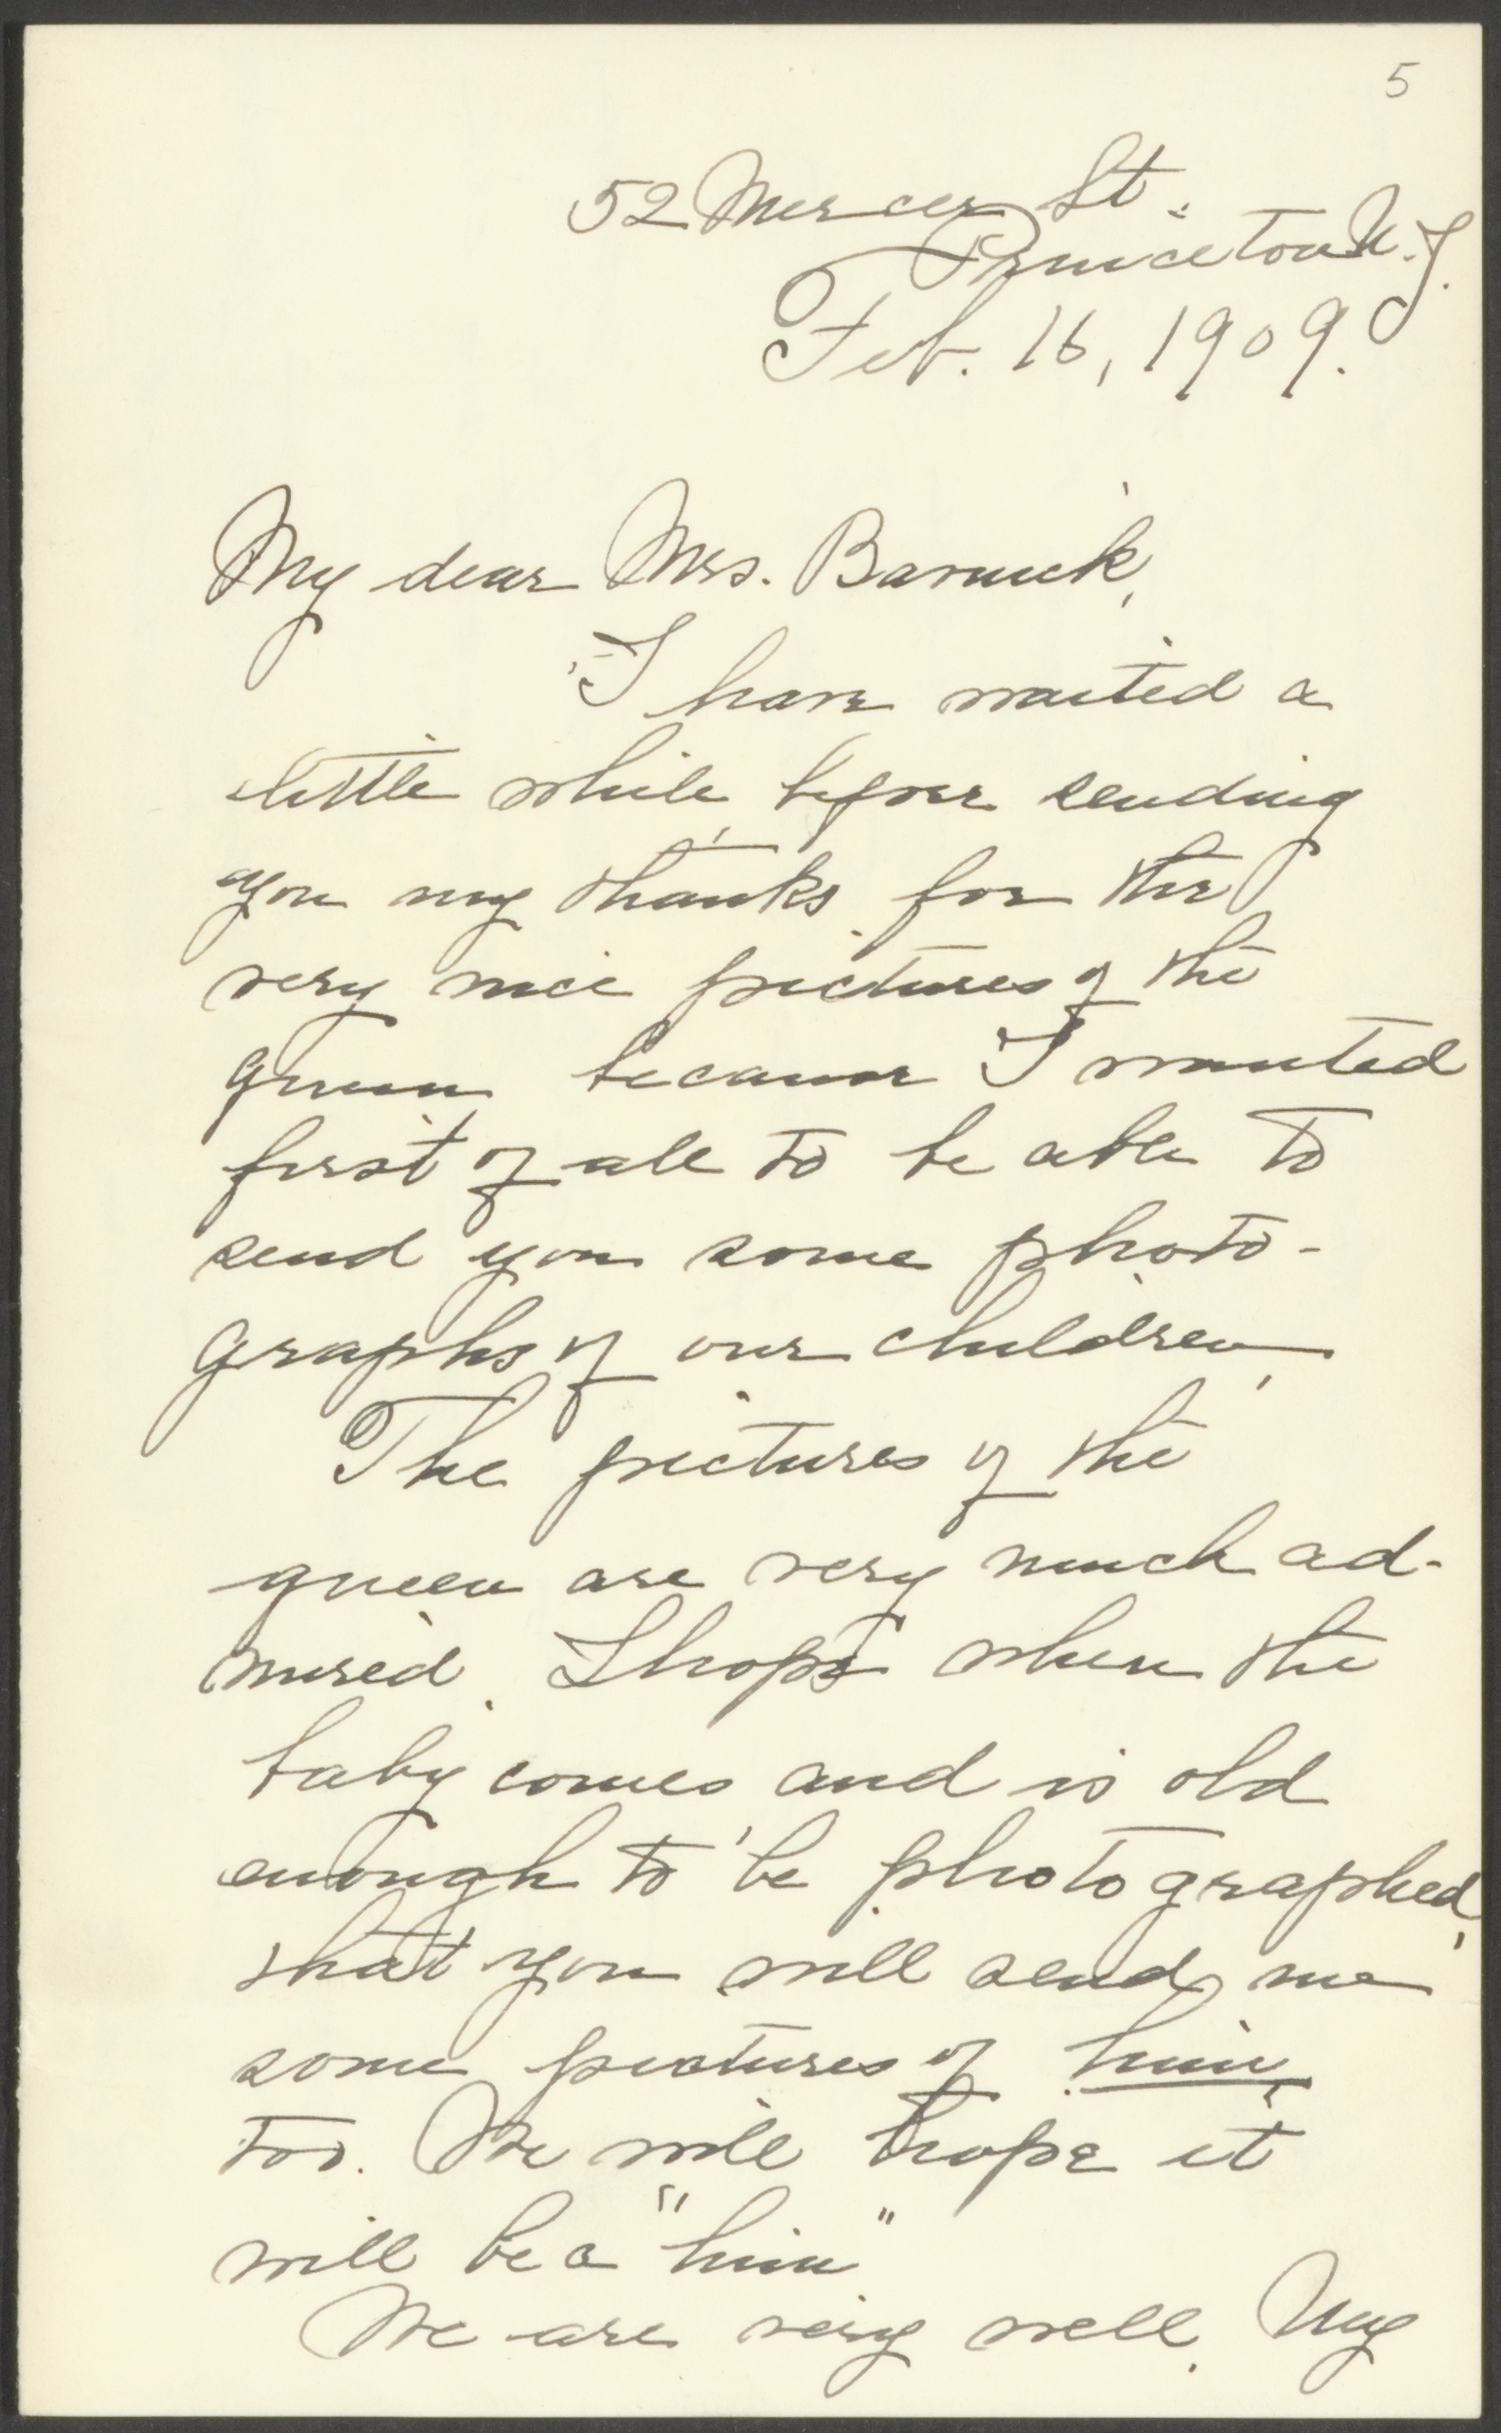 5
52 Mercer St.
Princeton N.J.
Feb. 16, 1909.
My dear Mrs. Barwick,
I have waited a
little while, before sending
you my thanks for the
very nice pictures of the
queen because I wanted
first of all to be able to
send you some photo-
graphs of our children.
The pictures of the
queen are very much ad-
mired. I hope when the
baby comes and is old
enough to be photographed,
that you will send me
some pictures of him,
too. We will hope it
will be a "him".
We are very well. My